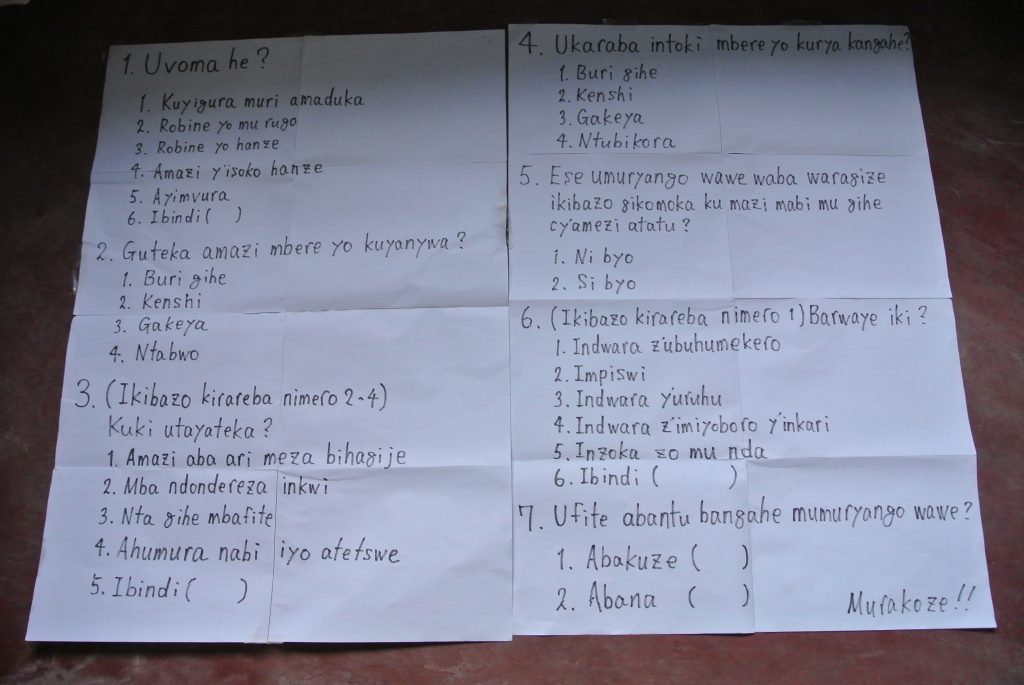 1. Uvoma he?
1. Kuyigura muri amaduka
2. Robine yo mu rugo
3. Robine yo hanze
4. Amazi y'isoko hanze
5. Ayimvura
6. Ibindi ( )
2. Guteka amazi mbere yo kuyanywa?
1. Buri gihe
2. Kenshi
3. Gakeya
4. Ntabwo
3. (Ikibazo kirareba nimero 2-4)
Kuki utayateka?
1. Amazi aba ari meza bihagije
2. Mba ndondereza inkwi
3. Nta gihe mbafite
4. Ahumura nabi iyo atetswe
5. Ibindi ( )
4. Ukaraba intoki mbere yo kurya kangahe?
1. Buri gihe
2. Kenshi
3. Gakeya
4. Ntubikora
5. Ese umuryango wawe waba waragize
ikibazo gikomoka ku mazi mabi mu gihe
cy'amezi atatu?
1. Ni byo
2. Si byo
6. (Ikibazo kirareba nimero 1) Barwaye iki?
1. Indwara z'ubuhumekero
2. Impiswi
3. Indwara y'uruhu
4. Indwara z'imiyoboro y'inkari
5. Inzoka zo mu nda
6. Ibindi ( )
7. Ufite abantu bangahe mumuryango wawe?
1. Abakuze ( )
2. Abana ( )
Murakoze!!